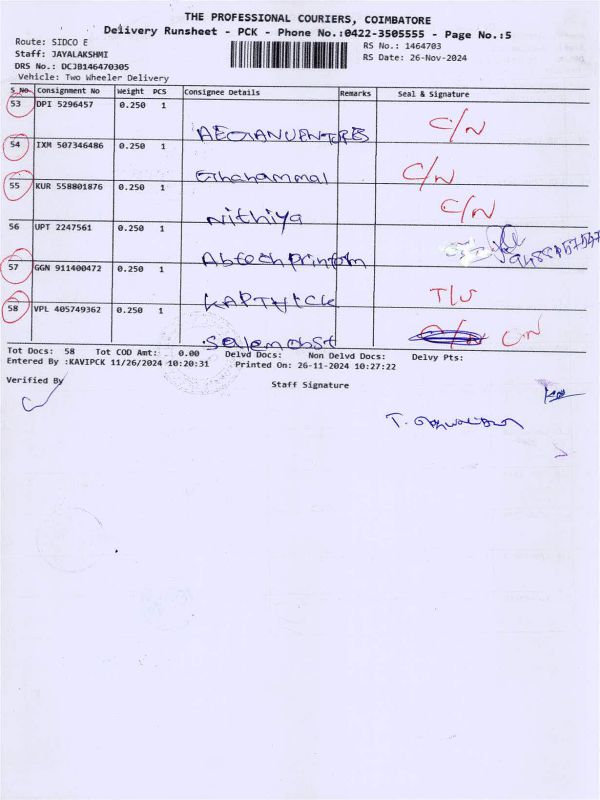 THE PROFESSIONAL COURIERS, COIMBATORE
Delivery Runsheet - PCK - Phone No.:0422-3505555 - Page No.:5
Route: SIDCO E
RS No.: 1464703
Staff: JAYALAKSHMI
RS Date: 26-Nov-2024
DRS No.: DCJB146470305
Vehicle: Two Wheeler Delivery
S No Consignment No Weight PCS Consignee Details Remarks Seal & Signature
53 DPI 5296457 0.250 1
C/N
54 IXM 507346486 0.250 1
C/N
55 KUR 558801876 0.250 1
Nithiya C/N
56 UPT 2247561 0.250 1
Abtech
57 GGN 911400472 0.250 1
T/S
58 VPL 405749362 0.250 1
C/N
Tot Docs: 58 Tot COD Amt: 0.00 Delvd Docs: Non Delvd Docs: Delvy Pts:
Entered By :KAVIPCK 11/26/2024 10:20:31 Printed On: 26-11-2024 10:27:22
Verified By
Staff Signature